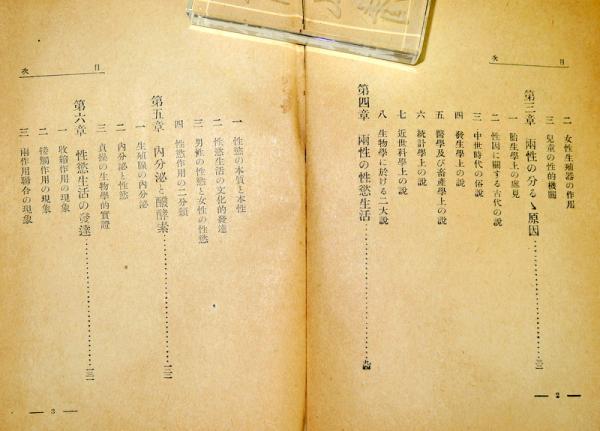 目次
二 女性生殖器の作用
三 兒童の性的機關
第三章 兩性の分るゝ原因
一 胎生學上の處見
二 性因に關する古代の說
三 中世時代の俗說
四 發生學上の說
五 醫學及び畜產學上の說
六 統計學上の說
七 近世科學上の說
八 生物學に於ける二大說
第四章 兩性の性慾生活
— 2 —
目次
一 性慾の本質と本性
二 性慾生活の文化的發達
三 男性の性慾と女性の性慾
四 性慾作用の二分類
第五章 內分泌と醱酵素
一 生殖腺の內分泌
二 內分泌と性慾
三 貞操の生物學的實證
第六章 性慾生活の發達
一 收縮作用の現象
二 接觸作用の現象
三 兩作用聯合の現象
— 3 —